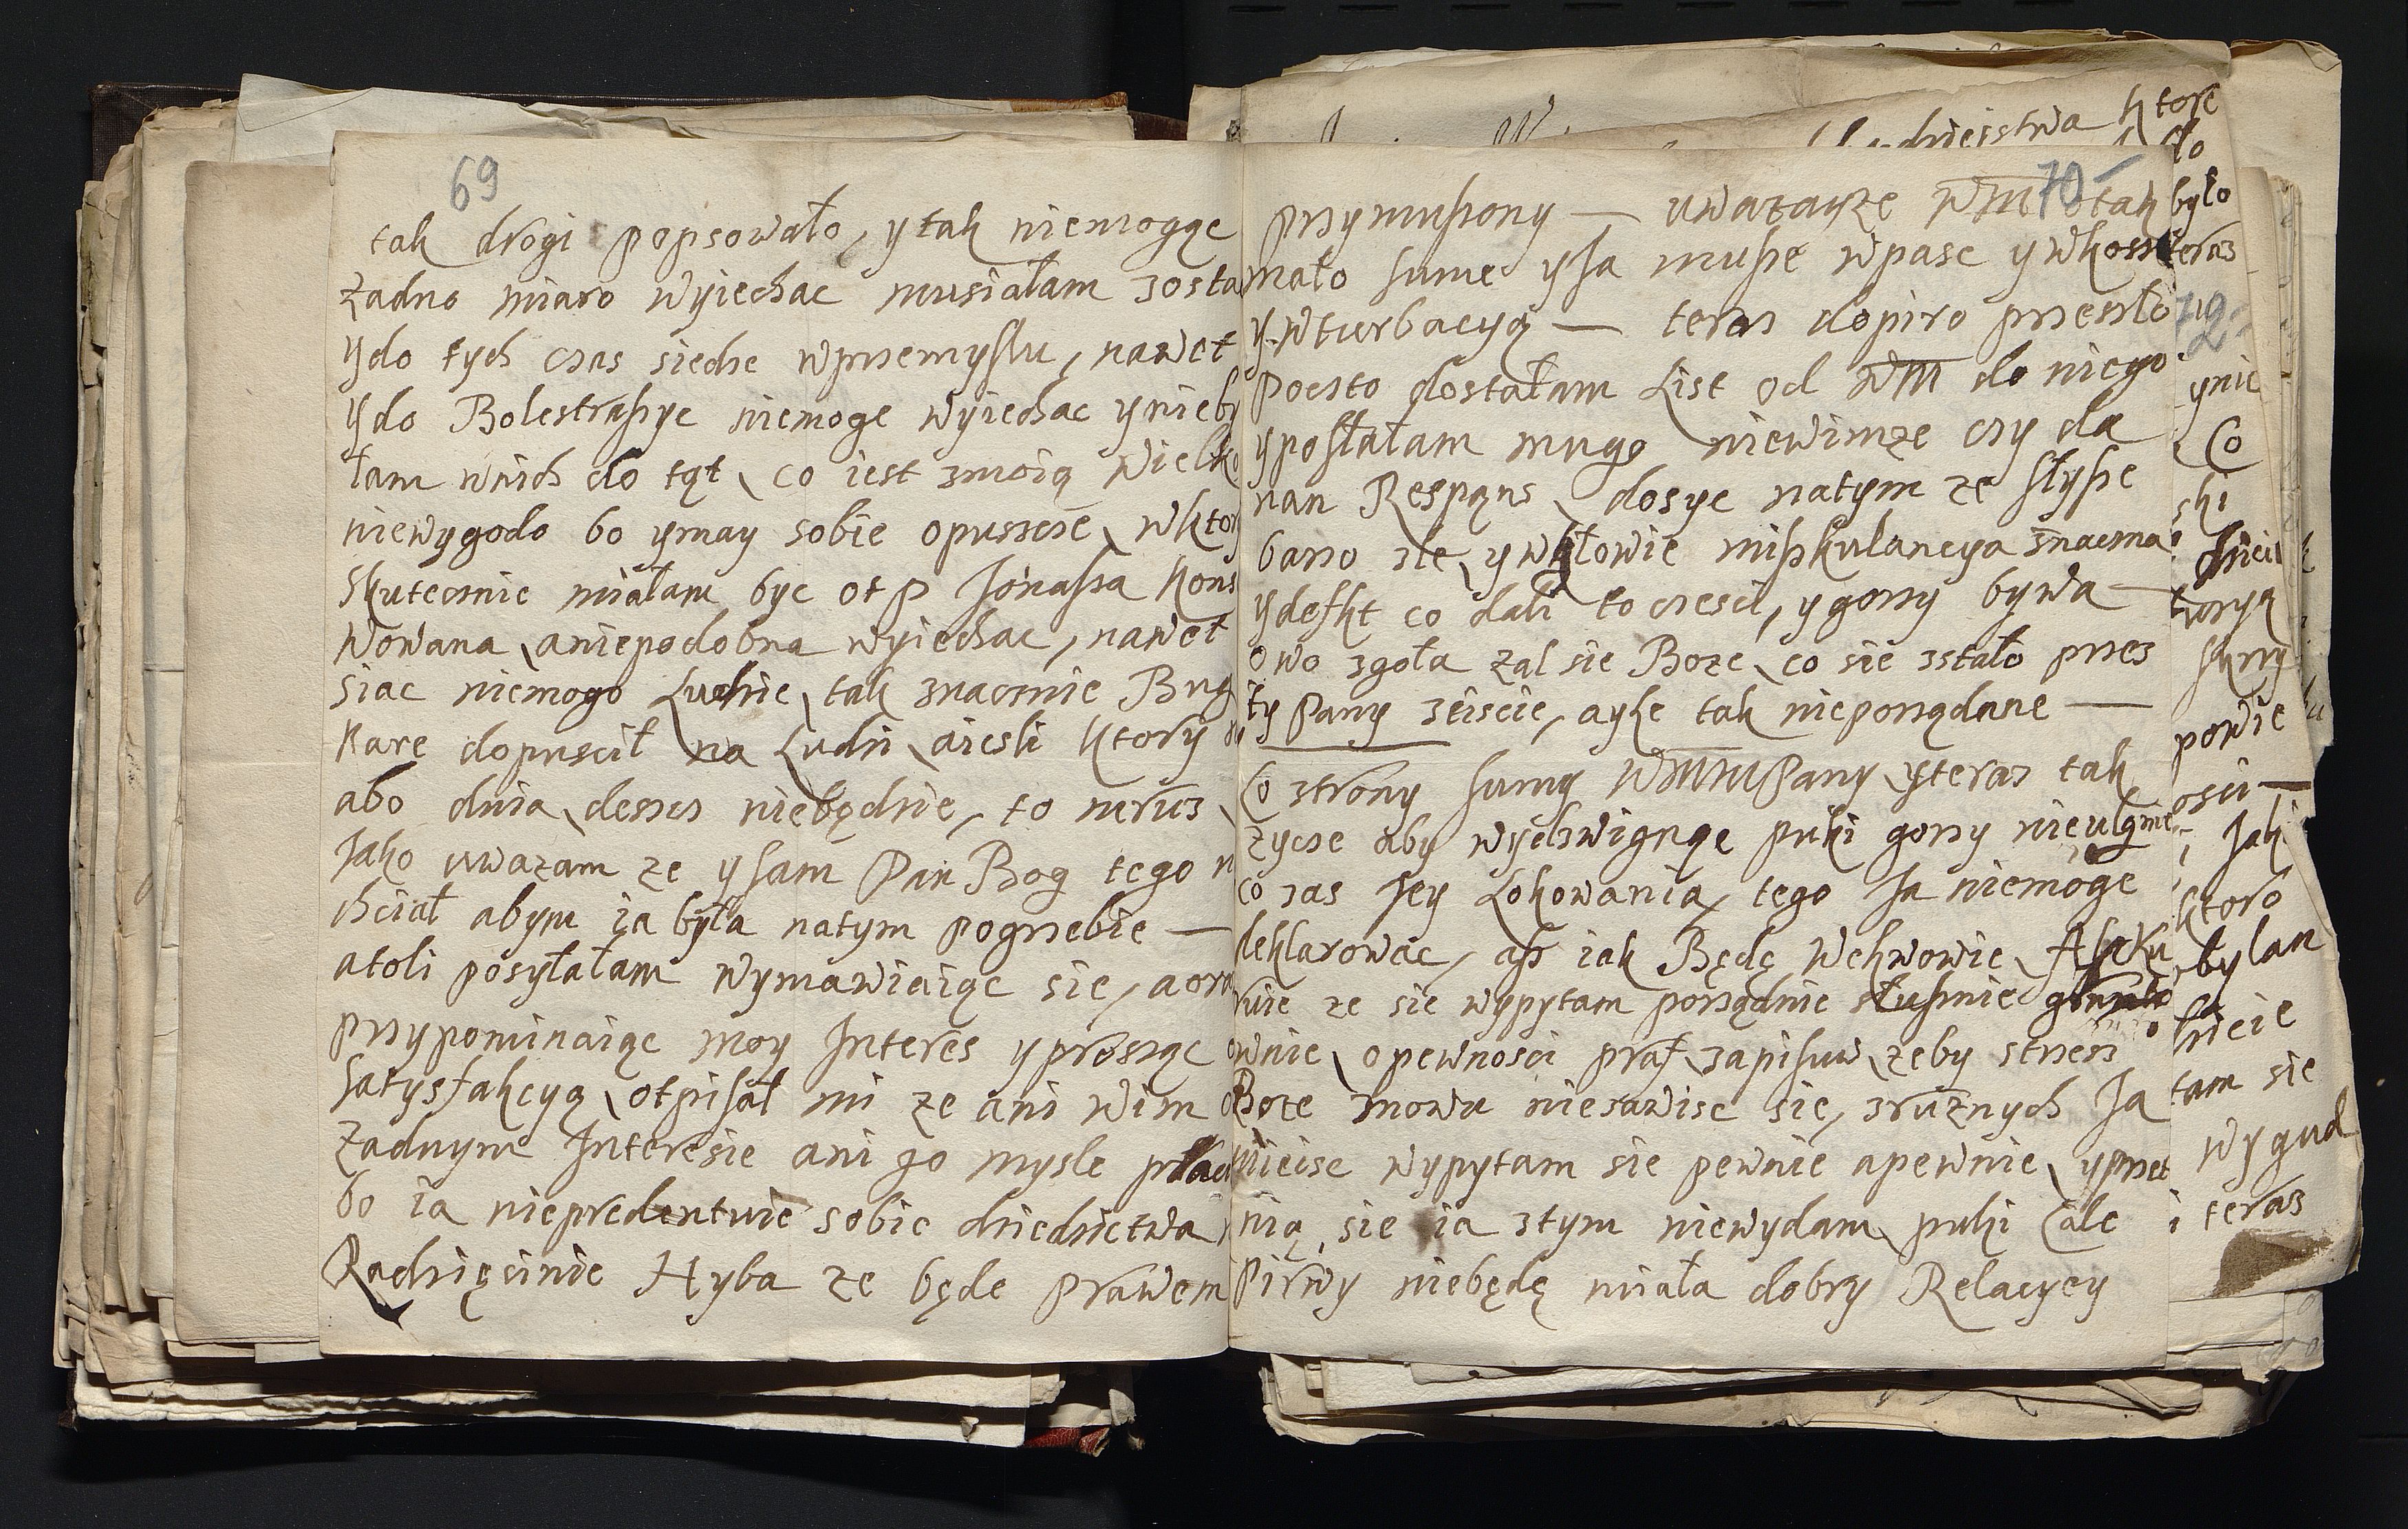 69
tak drogi popsowało, y tak niemogąc
żadno miaro wyiechac musiałam zosta
y do tych czas siedze wprzemyslu, nawet
y do Bolestraszyc niemoge wyiechac y nieby
łam wnich do tąt, co iest zmoią wielko
niewygodo bo ymay sobie opuszcze, wktory
skutecznie miałam byc ot P Jonassa kons
wowana, aniepodobna wyiechac, nawet
siac niemogo Ludzie, tak znacznie Bug
kare dopuscił na Ludzi, aiesli ktory
abo dnia, deszcz niebędzie, to mruz
Jako uwazam ze y sam Pan Bog tego n
chciał abym ia była natym pogrzebie —
atoli posyłałam wymawiaiąc sie, aora
przypominaiąc moy Interes y prosząc
satysfakcyą, otpisał mi ze ani wim o
żadnym Interesie ani go mysle płac
bo ia niepredentuie sobie dziedzictwa
Radzięcinie Hyba ze będe prawem
70
przymuszony — uwazayże WM tak
mało sume y Ja musze wpasc y wkoszt
y wturbacyą — teras dopiro przeszło
poczto dostałam List od WM do niego
y posłałam mugo niewimże czy da
nan Respąns, dosyc natym ze słysze
barzo zle, y wgłowie miszkulancya znaczna
y defkt co dali to czesci, y gorzy bywa —
owo zgoła żal sie Boże, co sie zstało przez
ty Pany zeiscie, ayke tak nieporządane —
Co strony sumy WMMPany, y teraz tak
życze aby wydzwignąc puki gorzy nieulgnie
co zas Jey Lokowania, tego Ja niemoge
deklarowac, asz iak Będę Wehwowie, Aseku
ruie ze sie wypytam porządnie słusznie
ownie, o pewnosci praf, zapisuw, żeby strzesz
Boze znowu niezawisc sie, zrużnych Ja
mieisc wypytam sie pewnie apewnie, yprzet
nią, sie ia ztym niewydam, puki Cale
Pirwy niebędę miała dobry Relacyey
ktore
do
było
teras
72
ynie
Co
ski
powie
Jak
ktoro
bylan
tam sie
wygud
i teras